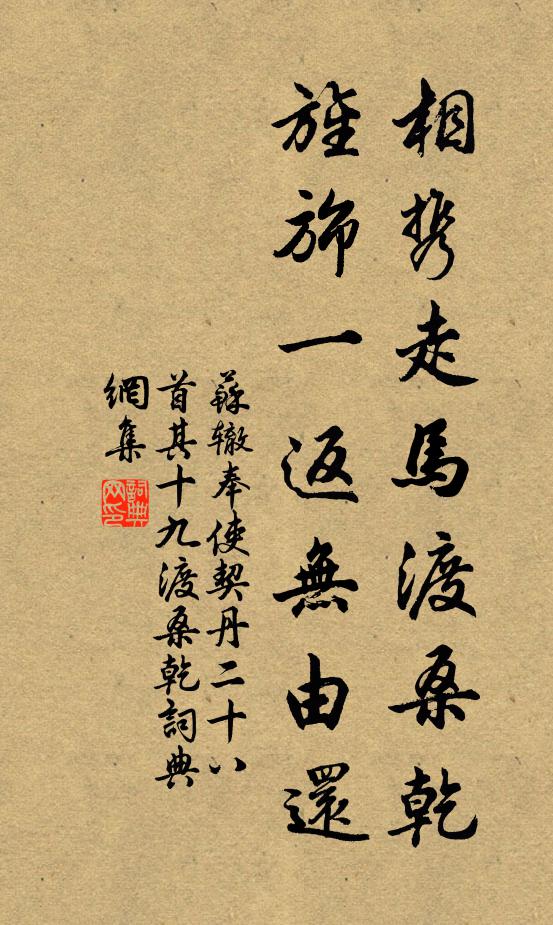 相携走馬渡桑乾
旌旆一返無由還
蘇轍奉使契丹二十八
首其十九渡桑乾詞典
網集
詞典
网印